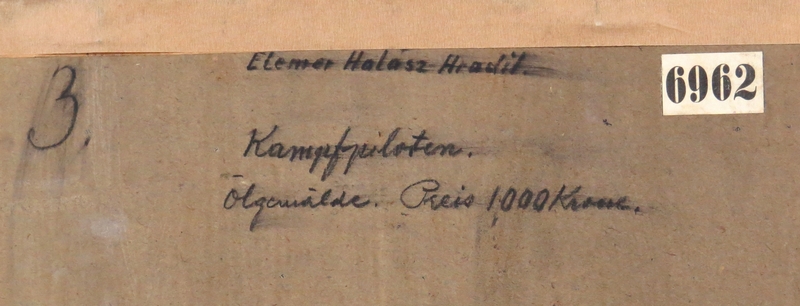 Elemér Halász Hradil.
6962
3.
Kampfpiloten.
Ölgemälde. Preis 1000 Krone.